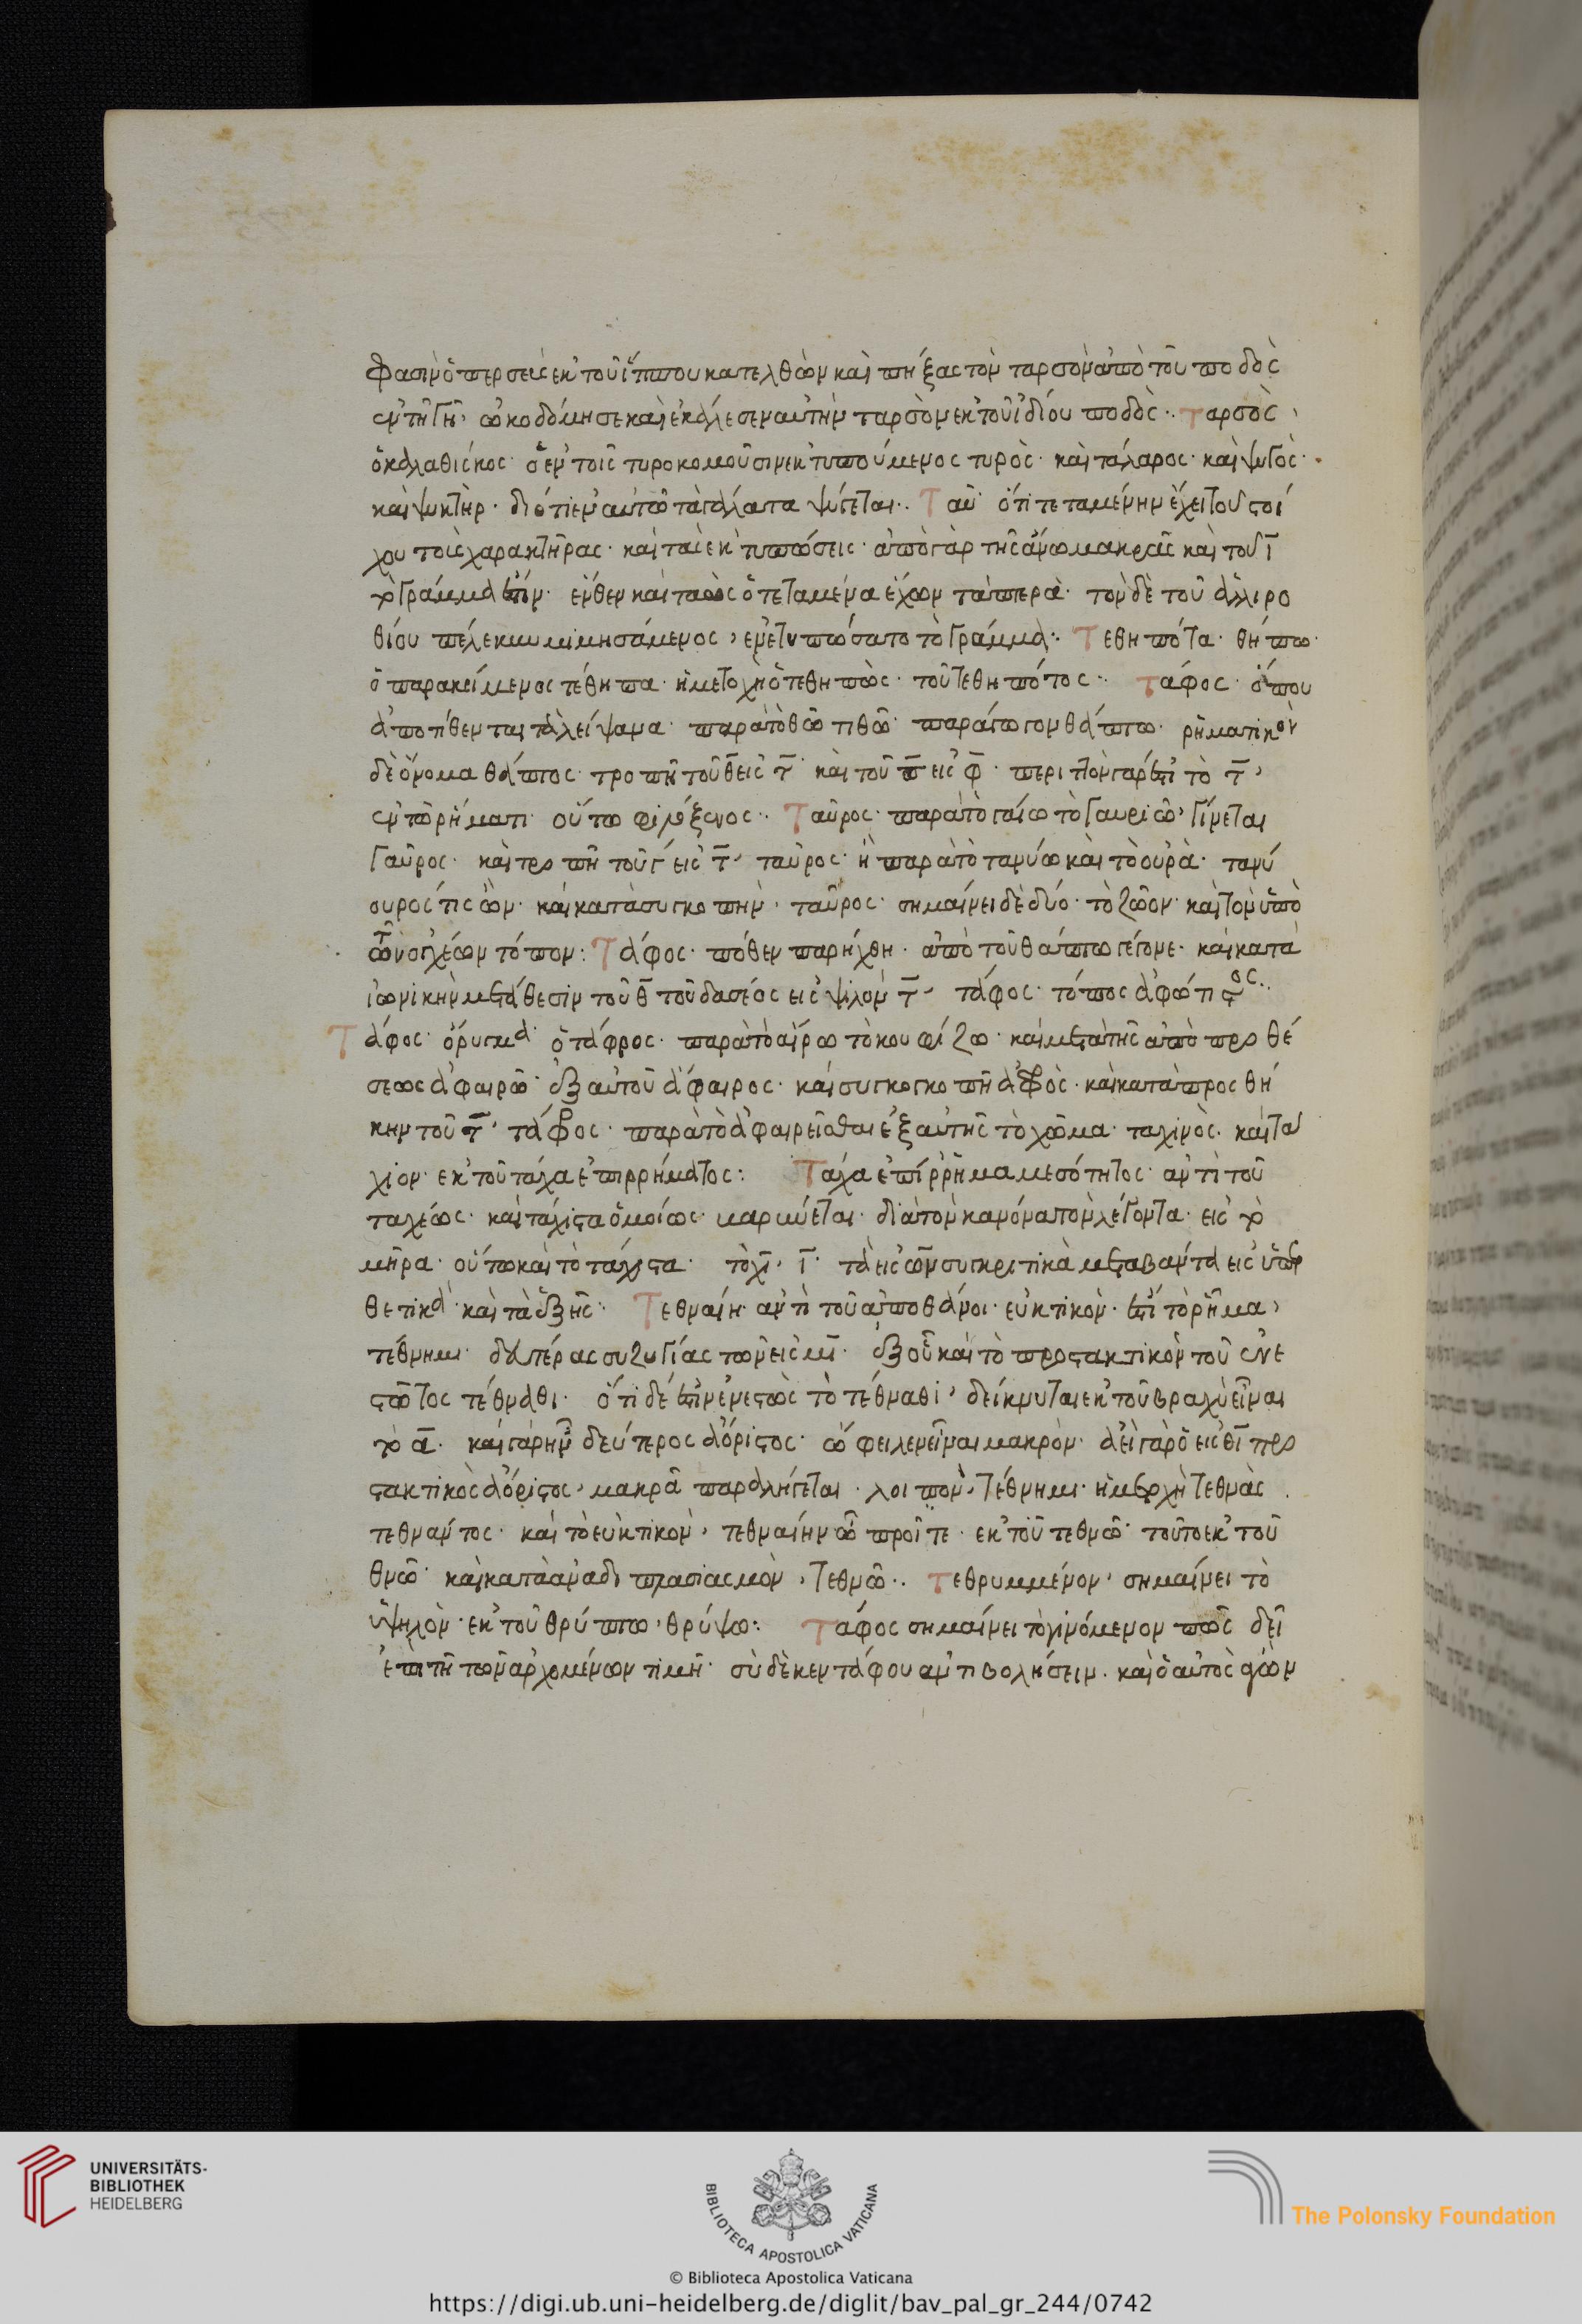 φασὶν ὁ περσεὺς ἐκ τοῦ ἵππου κατελθὼν καὶ πήξας τὸν ταρσὸν ἀπὸ τοῦ ποδὸς
ἐν τῆ γῆ, ὠκοδόμησε καὶ ἐκάλεσεν αὐτὴν ταρσὸν ἐκ τοῦ ἰδίου ποδός·. Ταρσὸς,
ὁ καλαθίσκος· ὁ ἐν τοῖς τυροκομοῦσιν ἐκτυπούμενος τυρὸς· καὶ τάλαρος· καὶ ψυγὸς·
καὶ ψυκτὴρ· διότι ἐν αὐτῶ τὰ γάλατα ψύγεται·. Ταῦ· ὅτι τεταμένην ἔχει τοῦ στοί
χου τοὺς χαρακτῆρας· καὶ τὰς ἐκτυπώσεις· ἀπὸ γὰρ τῆς ἄνω μακρᾶς καὶ τοῦ ῑ
τὸ γράμμα ἐστίν· ἔνθεν καὶ ταὼς ὁ τεταμένα ἔχων τὰ πτερά· τὸν δὲ τοῦ ἁλιρο
θίου πέλεκυν μιμησάμενος, ἐνετυπώσατο τὸ γράμμα·. Τεθηπότα· θήπω·
ὁ παρακείμενος τέθηπα· ἡ μετοχὴ ὁ τεθηπὼς· τοῦ τεθηπότος·. Τάφος· ὅπου
ἀποτίθενται τὰ λείψανα· παρὰ τὸ θῶ τιθῶ· παράγωγον θάπτω· ρηματικὸν
δὲ ὄνομα θάπτος· τροπῆ τοῦ θ̄ εἰς τ̄· καὶ τοῦ π̄ εἰς φ̄· περιττὸν γάρ ἐστι τὸ τ̄,
ἐν τῶ ρήματι· οὕτω φιλόξενος·. Ταῦρος· παρὰ τὸ γαίω τὸ γαυριῶ, γίνεται
γαῦρος· καὶ τροπῆ τοῦ γ εἰς τ̄, ταῦρος· ἢ παρὰ τὸ τανύω καὶ τὸ οὐρὰ· τανύ
ουρός τις ὢν· καὶ κατὰ συγκοπὴν, ταῦρος· σημαίνει δὲ δύο· τὸ ζῶον· καὶ τὸν ὑπὸ
τῶν ὀχέων τόπον: Τάφος· πόθεν παρήχθη· ἀπὸ τοῦ θάπτω γέγονε· καὶ κατὰ
ἰωνικὴν μετάθεσιν τοῦ θ̄ τοῦ δασέος εἰς ψιλὸν τ̄, τάφος· τόπος ἀφώτιστος·.
Τάφος· ὄρυγμα· ὁ τάφρος· παρὰ τὸ αἴρω τὸ κουφίζω· καὶ μετὰ τῆς ἀπὸ προθέ
σεως ἀφαιρῶ· ἐξ αὐτοῦ ἄφαιρος· καὶ συγκοπῆ ἀφρὸς· καὶ κατὰ προσθή
κην τοῦ τ̄, τάφρος· παρὰ τὸ ἀφαιρεῖσθαι ἐξ αὐτῆς τὸ χῶμα· ταχινὸς· καὶ τα
χίον· ἐκ τοῦ τάχα ἐπιρρήματος: Τάχα ἐπίρρημα μεσότητος· ἀντὶ τοῦ
ταχέως· καὶ τάχιστα ὁμοίως· μαρκύεται· διὰ τὸν κανόνα τὸν λέγοντα· εἰς τὸ
μῆρα· οὕτω καὶ τὸ τάχιστα· τὸ χῑ, ῑ· τὰ εἰς ων συγκριτικὰ μεταβαίνοντα εἰς ὑπερ
θετικὰ· καὶ τὰ ἑξῆς·. Τεθναίη· ἀντὶ τοῦ ἀποθάνοι· εὐκτικὸν· ἐστὶ τὸ ρῆμα,
τέθνημι· δευτέρας συζυγίας τῶν εἰς μῑ· ἐξ οὗ καὶ τὸ προστακτικὸν τοῦ ἐνε
στῶτος τέθναθι· ὅτι δέ ἐστιν ἐνεστὼς τὸ τέθναθι, δείκνυται ἐκ τοῦ βραχὺ εἶναι
τὸ ᾱ· καὶ γὰρ ἦν δεύτερος ἀόριστος· ὤφειλεν εἶναι μακρὸν· ἀεὶ γὰρ ὁ εἰς θῑ προ
στακτικὸς ἀόριστος, μακρᾶ παραλήγεται· λοιπὸν, τέθνημι· ἡ μετοχὴ τεθνὰς
τεθνάντος· καὶ τὸ εὐκτικὸν, τεθναίην ὦ πρῶτε· ἐκ τοῦ τεθνῶ· τοῦτο ἐκ τοῦ
θνῶ· καὶ κατὰ ἀναδιπλασιασμὸν, τεθνῶ·. Τεθρυμμένον, σημαίνει τὸ
ὑψηλὸν· ἐκ τοῦ θρύπτω, θρύψω:. Τάφος σημαίνει τὸ γινόμενον πῶς δεῖ
ἐπὶ τῆ τῶν ἀρχομένων τιμῆ· σὺ δὲ κεν τάφου ἀντιβολήσειν· καὶ ὁ αὐτὸς φων